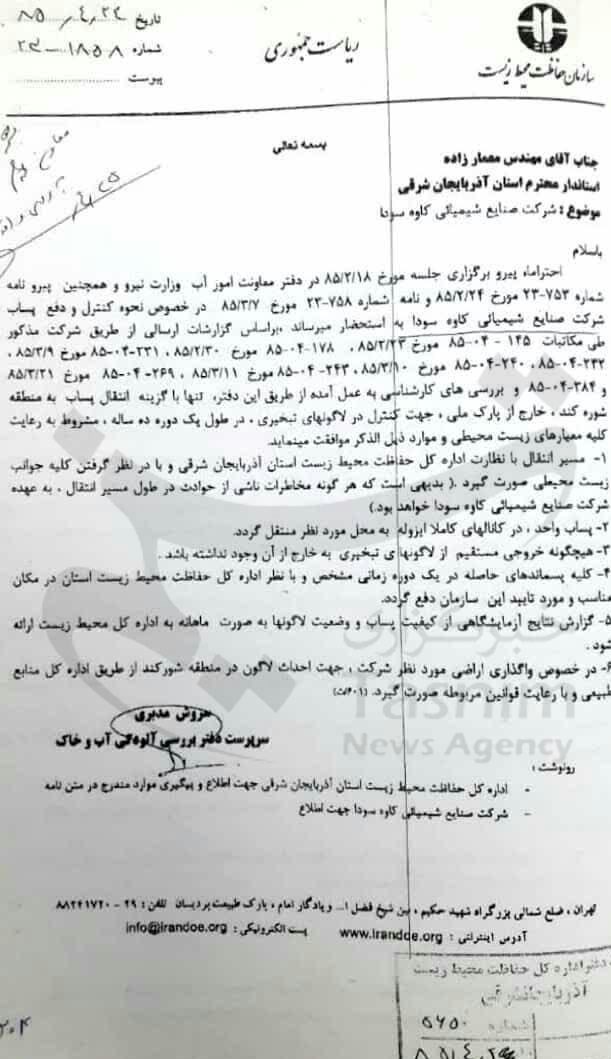 سازمان حفاظت محیط زیست
ریاست جمهوری
تاریخ ۸۵/۴/۲۴
شماره ۱۸۵۸-۲۳
پیوست
بسمه تعالی
جناب آقای مهندس معمارزاده
استاندار محترم استان آذربایجان شرقی
موضوع : شرکت صنایع شیمیائی کاوه سودا
باسلام
احتراماً، پیرو برگزاری جلسه مورخ ۸۵/۲/۱۸ در دفتر معاونت امور آب وزارت نیرو و همچنین پیرو نامه
شماره ۷۵۳-۲۳ مورخ ۸۵/۲/۲۴ و نامه شماره ۷۵۸-۲۳ مورخ ۸۵/۳/۷ در خصوص نحوه کنترل و دفع پساب
شرکت صنایع شیمیائی کاوه سودا به استحضار میرساند ،براساس گزارشات ارسالی از طریق شرکت مذکور
طی مکاتبات ۱۴۵ - ۰۴-۸۵ مورخ ۸۵/۲/۲۳، ۱۷۸-۰۴-۸۵ مورخ ۸۵/۲/۳۰ ، ۲۳۱-۰۴-۸۵ مورخ ۸۵/۳/۹ ،
۲۳۲-۰۴-۸۵ ، ۲۴۰-۰۴-۸۵ مورخ ۸۵/۳/۱۰ ، ۲۴۳-۰۴-۸۵ مورخ ۸۵/۳/۱۱ ، ۲۶۹-۰۴-۸۵ مورخ ۸۵/۳/۲۱
و ۲۸۴-۰۴-۸۵ و بررسی های کارشناسی به عمل آمده از طریق این دفتر، تنها با گزینه انتقال پساب به منطقه
شوره کند ، خارج از پارک ملی ، جهت کنترل در لاگونهای تبخیری ، در طول یک دوره ده ساله ، مشروط به رعایت
کلیه معیارهای زیست محیطی و موارد ذیل الذکر موافقت مینماید.
۱- مسیر انتقال با نظارت اداره کل حفاظت محیط زیست استان آذربایجان شرقی و با در نظر گرفتن کلیه جوانب
زیست محیطی صورت گیرد .( بدیهی است که هر گونه مخاطرات ناشی از حوادث در طول مسیر انتقال ، به عهده
شرکت صنایع شیمیائی کاوه سودا خواهد بود.)
۲- پساب واحد ، در کانالهای کاملا ایزوله به محل مورد نظر منتقل گردد.
۳- هیچگونه خروجی مستقیم از لاگونهای تبخیری به خارج از آن وجود نداشته باشد .
۴- کلیه پسماندهای حاصله در یک دوره زمانی مشخص و با نظر اداره کل حفاظت محیط زیست استان در مکان
مناسب و مورد تایید این سازمان دفع گردد.
۵- گزارش نتایج آزمایشگاهی از کیفیت پساب و وضعیت لاگونها به صورت ماهانه به اداره کل محیط زیست ارائه
شود .
۶- در خصوص واگذاری اراضی مورد نظر شرکت ، جهت احداث لاگون در منطقه شورکند از طریق اداره کل منابع
طبیعی و با رعایت قوانین مربوطه صورت گیرد.
سروش مدبری
سرپرست دفتر بررسی آلودگی آب و خاک
رونوشت :
- اداره کل حفاظت محیط زیست استان آذربایجان شرقی جهت اطلاع و پیگیری موارد مندرج در متن نامه
- شرکت صنایع شیمیائی کاوه سودا جهت اطلاع
تهران ، ضلع شمالی بزرگراه شهید حکیم ، بین شیخ فضل ا... و یادگار امام ، پارک طبیعت پردیسان تلفن : ۲۹ - ۸۸۲۴۱۷۲۰
آدرس اینترنتی : www.irandoe.org پست الکترونیکی : info@irandoe.org
دفتر اداره کل حفاظت محیط زیست
آذربایجانشرقی
شماره ۵۶۵۰
خبرگزاری
Tasnim
News Agency